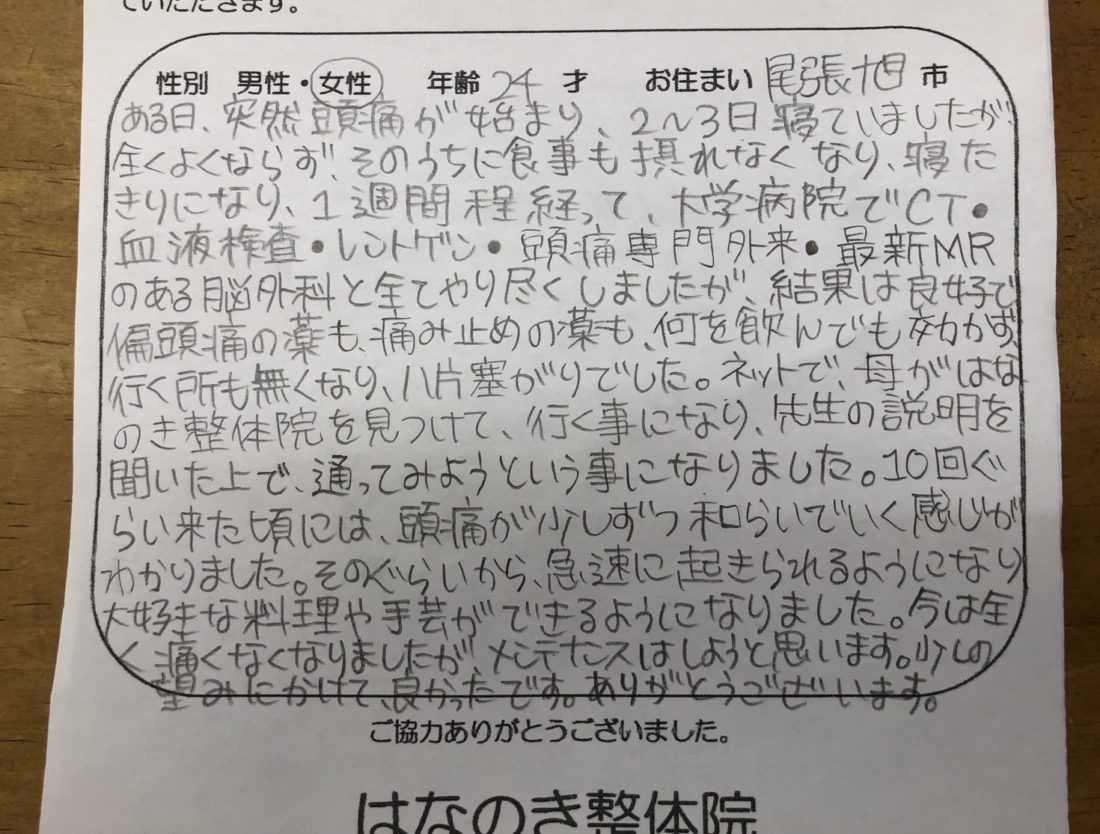 ていただきます。
性別 男性・女性 年齢 24 才 お住まい 尾張旭 市
ある日、突然頭痛が始まり、2〜3日寝ていましたが、
全くよくならず、そのうちに食事も摂れなくなり、寝た
きりになり、1週間程経って、大学病院でCT・
血液検査・レントゲン・頭痛専門外来・最新MR
のある脳外科と全てやり尽くしましたが、結果は良好で
偏頭痛の薬も、痛み止めの薬も、何を飲んでも効かず、
行く所も無くなり、八片塞がりでした。ネットで、母がはな
のき整体院を見つけて、行く事になり、先生の説明を
聞いた上で、通ってみようという事になりました。10回ぐ
らい来た頃には、頭痛が少しずつ和らいでいく感じが
わかりました。そのぐらいから、急速に起きられるようになり
大好きな料理や手芸ができるようになりました。今は全
く痛くなくなりましたが、メンテナンスはしようと思います。少しの
望みにかけて、良かったです。ありがとうございます。
ご協力ありがとうございました。
はなのき整体院